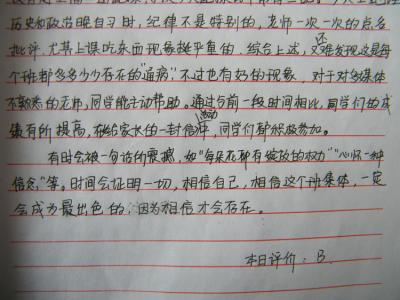 历史和政治晚自习时，纪律不是特别的好，老师一次一次的点名
批评，尤其上课吃东西现象挺严重的，综合上述，还又难发现这是每
个班都多多少少存在的"通病"，不过也有好的现象，对于对多媒体
不熟悉的老师，同学能主动帮助。通过与前一段时间相比，同学们的成
绩有所提高，在给家长的一封信活动中，同学们都积极参加。
有时会被一句话所震撼，如"每朵花都有绽放的权力""心怀一种
信念"等。时间会证明一切，相信自己，相信这个班集体，一定
会成为最出色的，因为相信才会存在。
本日评价：B.